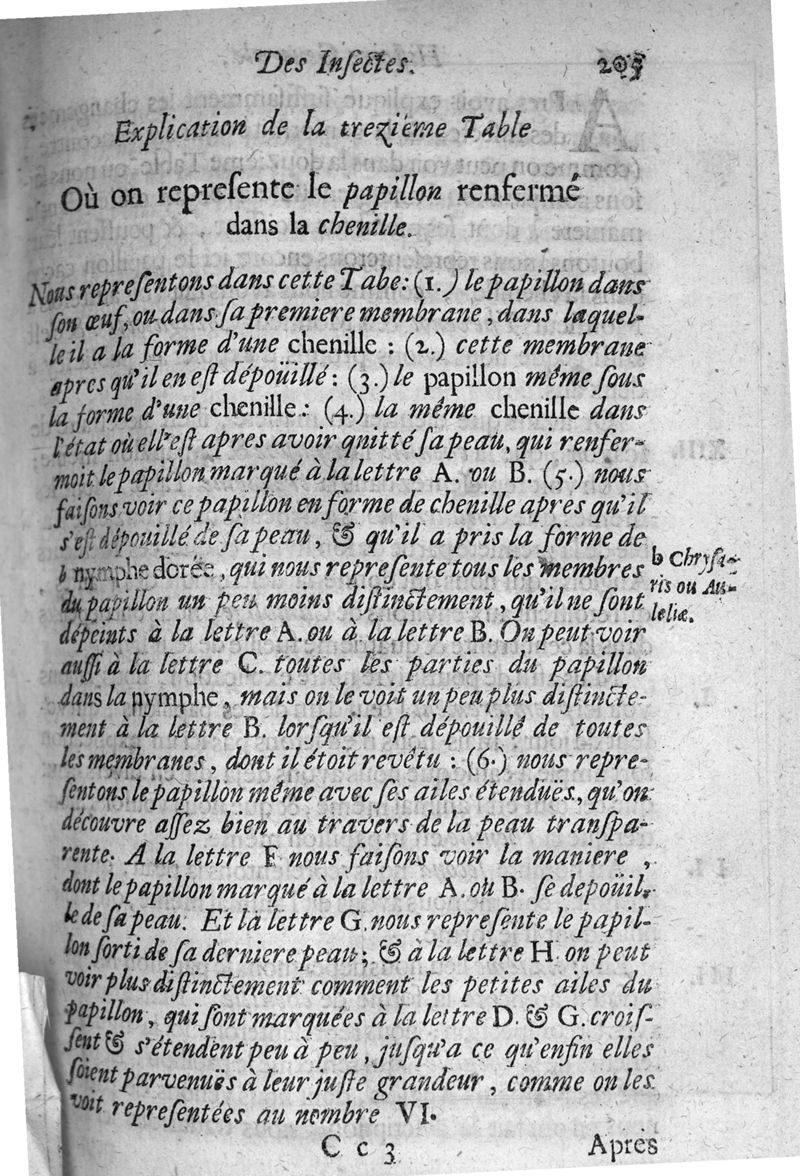 Des Inſectes. 205
Explication de la treziéme Table
Où on repreſente le papillon renfermé
dans la chenille.
Nous repreſentons dans cette Tabe: (1.) le papillon dans
ſon œuf, ou dans ſa premiere membrane, dans laquel-
le il a la forme d'une chenille : (2.) cette membrane
apres qu'il en eſt dépoüillé : (3.) le papillon même ſous
la forme d'une chenille : (4.) la même chenille dans
l'état où ell'eſt apres avoir qnitté ſa peau, qui renfer-
moit le papillon marqué à la lettre A. ou B. (5.) nous
faiſons voir ce papillon en forme de chenille apres qu'il
s'eſt dépouillé de ſa peau, & qu'il a pris la forme de
b nymphe dorée, qui nous repreſente tous les membres
du papillon un peu moins diſtinctement, qu'il ne ſont
dépeints à la lettre A. ou à la lettre B. On peut voir
auſſi à la lettre C. toutes les parties du papillon
dans la nymphe, mais on le voit un peu plus diſtincte-
ment à la lettre B. lorſqu'il eſt dépouillé de toutes
les membranes, dont il étoit revêtu : (6.) nous repre-
ſentons le papillon même avec ſes ailes étenduës, qu'on
découvre aſſez bien au travers de la peau tranſpa-
rente. A la lettre F nous faiſons voir la maniere,
dont le papillon marqué à la lettre A. ou B. ſe depoüil-
le de ſa peau. Et la lettre G. nous repreſente le papil-
lon ſorti de ſa derniere peau; & à la lettre H on peut
voir plus diſtinctement comment les petites ailes du
papillon, qui ſont marquées à la lettre D. & G. croiſ-
ſent & s'étendent peu à peu, juſqu'a ce qu'enfin elles
ſoient parvenuës à leur juſte grandeur, comme on les
voit repreſentées au nombre VI.
b Chryſa-
ris ou Au-
leliæ.
C c 3 Apres